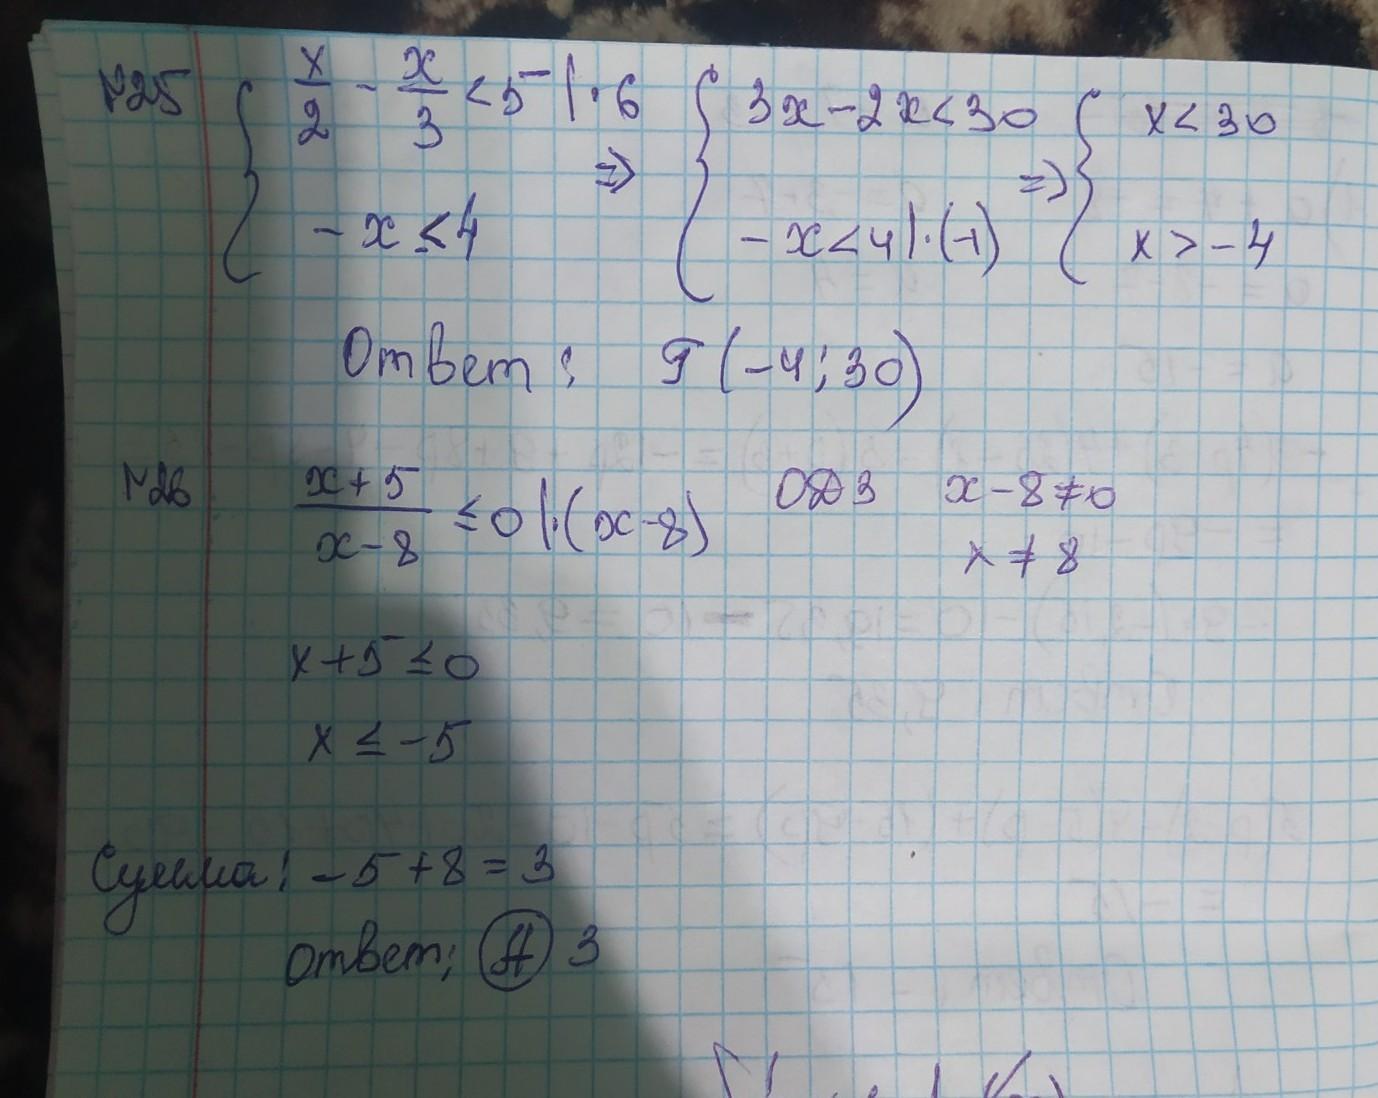 №25 { x/2 - x/3 < 5 | · 6 ⇒ { 3x - 2x < 30 ⇒ { x < 30
- x ≤ 4 - x < 4 | · (-1) x > - 4
Ответ: Г (-4; 30)
№26 x+5/x-8 ≤ 0 | · (x-8) ОДЗ x - 8 ≠ 0
x ≠ 8
x + 5 ≤ 0
x ≤ -5
Сумма: -5 + 8 = 3
Ответ: А 3